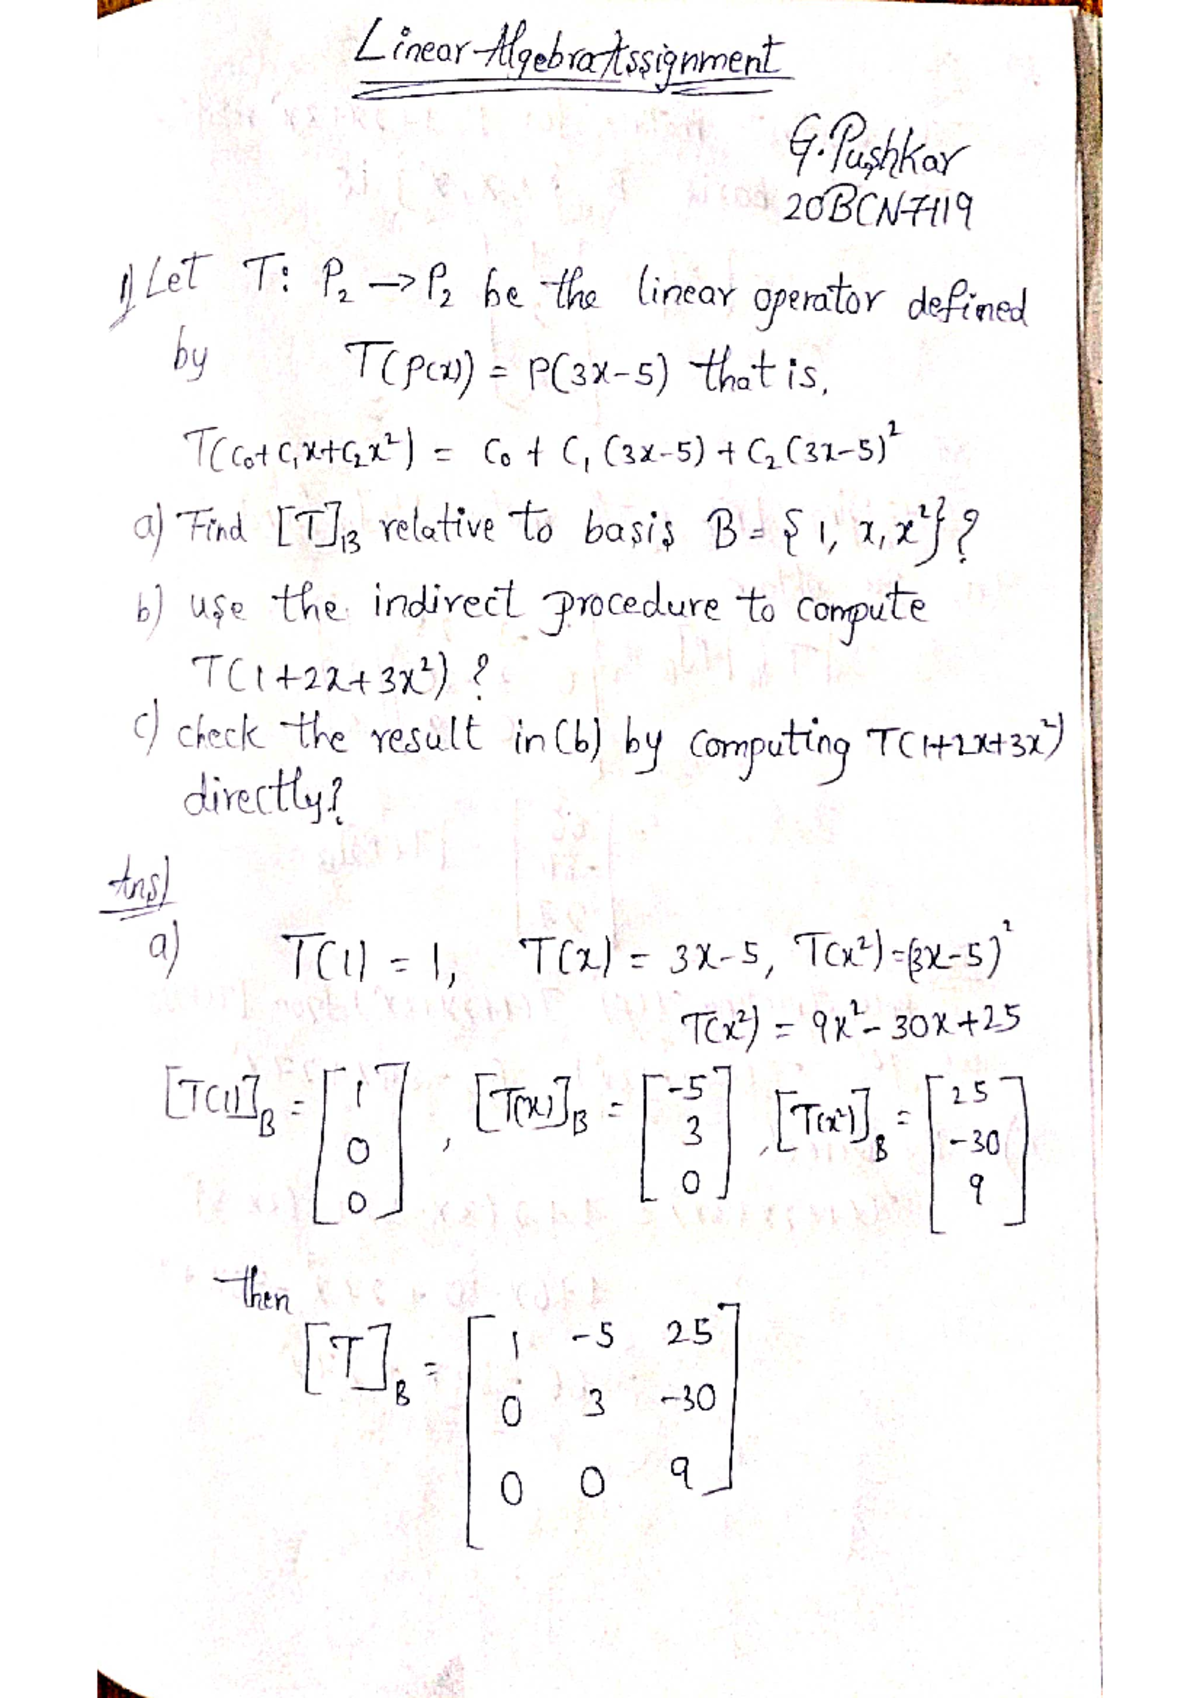 Linear Algebra Assignment
G. Pushkar
20BCN7119
1) Let T: P₂ → P₂ be the linear operator defined
by T(P(x)) = P(3x-5) that is,
T(C₀+C₁x+C₂x²) = C₀ + C₁(3x-5) + C₂(3x-5)²
a) Find [T]B relative to basis B = {1, x, x²}?
b) use the indirect procedure to compute
T(1+2x+3x²) ?
c) check the result in (b) by computing T(1+2x+3x²)
directly?
Ans)
a) T(1) = 1, T(x) = 3x-5, T(x²) = (3x-5)²
T(x²) = 9x² - 30x + 25
[T(1)]B = [1 0 0], [T(x)]B = [-5 3 0], [T(x²)]B = [25 -30 9]
then
[T]B = [1 -5 25
0 3 -30
0 0 9]